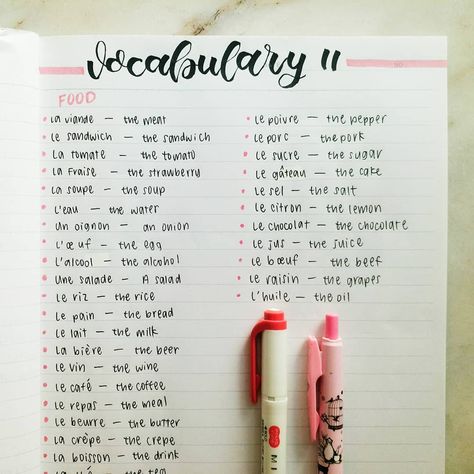 vocabulary 11
FOOD
La viande – the meat
Le sandwich – the sandwich
La tomate – the tomato
La fraise – the strawberry
La soupe – the soup
L'eau – the water
Un oignon – an onion
L'œuf – the egg
L'alcool – the alcohol
Une salade – A salad
Le riz – the rice
Le pain – the bread
Le lait – the milk
La bière – the beer
Le vin – the wine
Le café – the coffee
Le repas – the meal
Le beurre – the butter
La crêpe – the crepe
La boisson – the drink
the tea
Le poivre – the pepper
Le porc – the pork
Le sucre – the sugar
Le gâteau – the cake
Le sel – the salt
Le citron – the lemon
Le chocolat – the chocolate
Le jus – the juice
Le bœuf – the beef
Le raisin – the grapes
L'huile – the oil